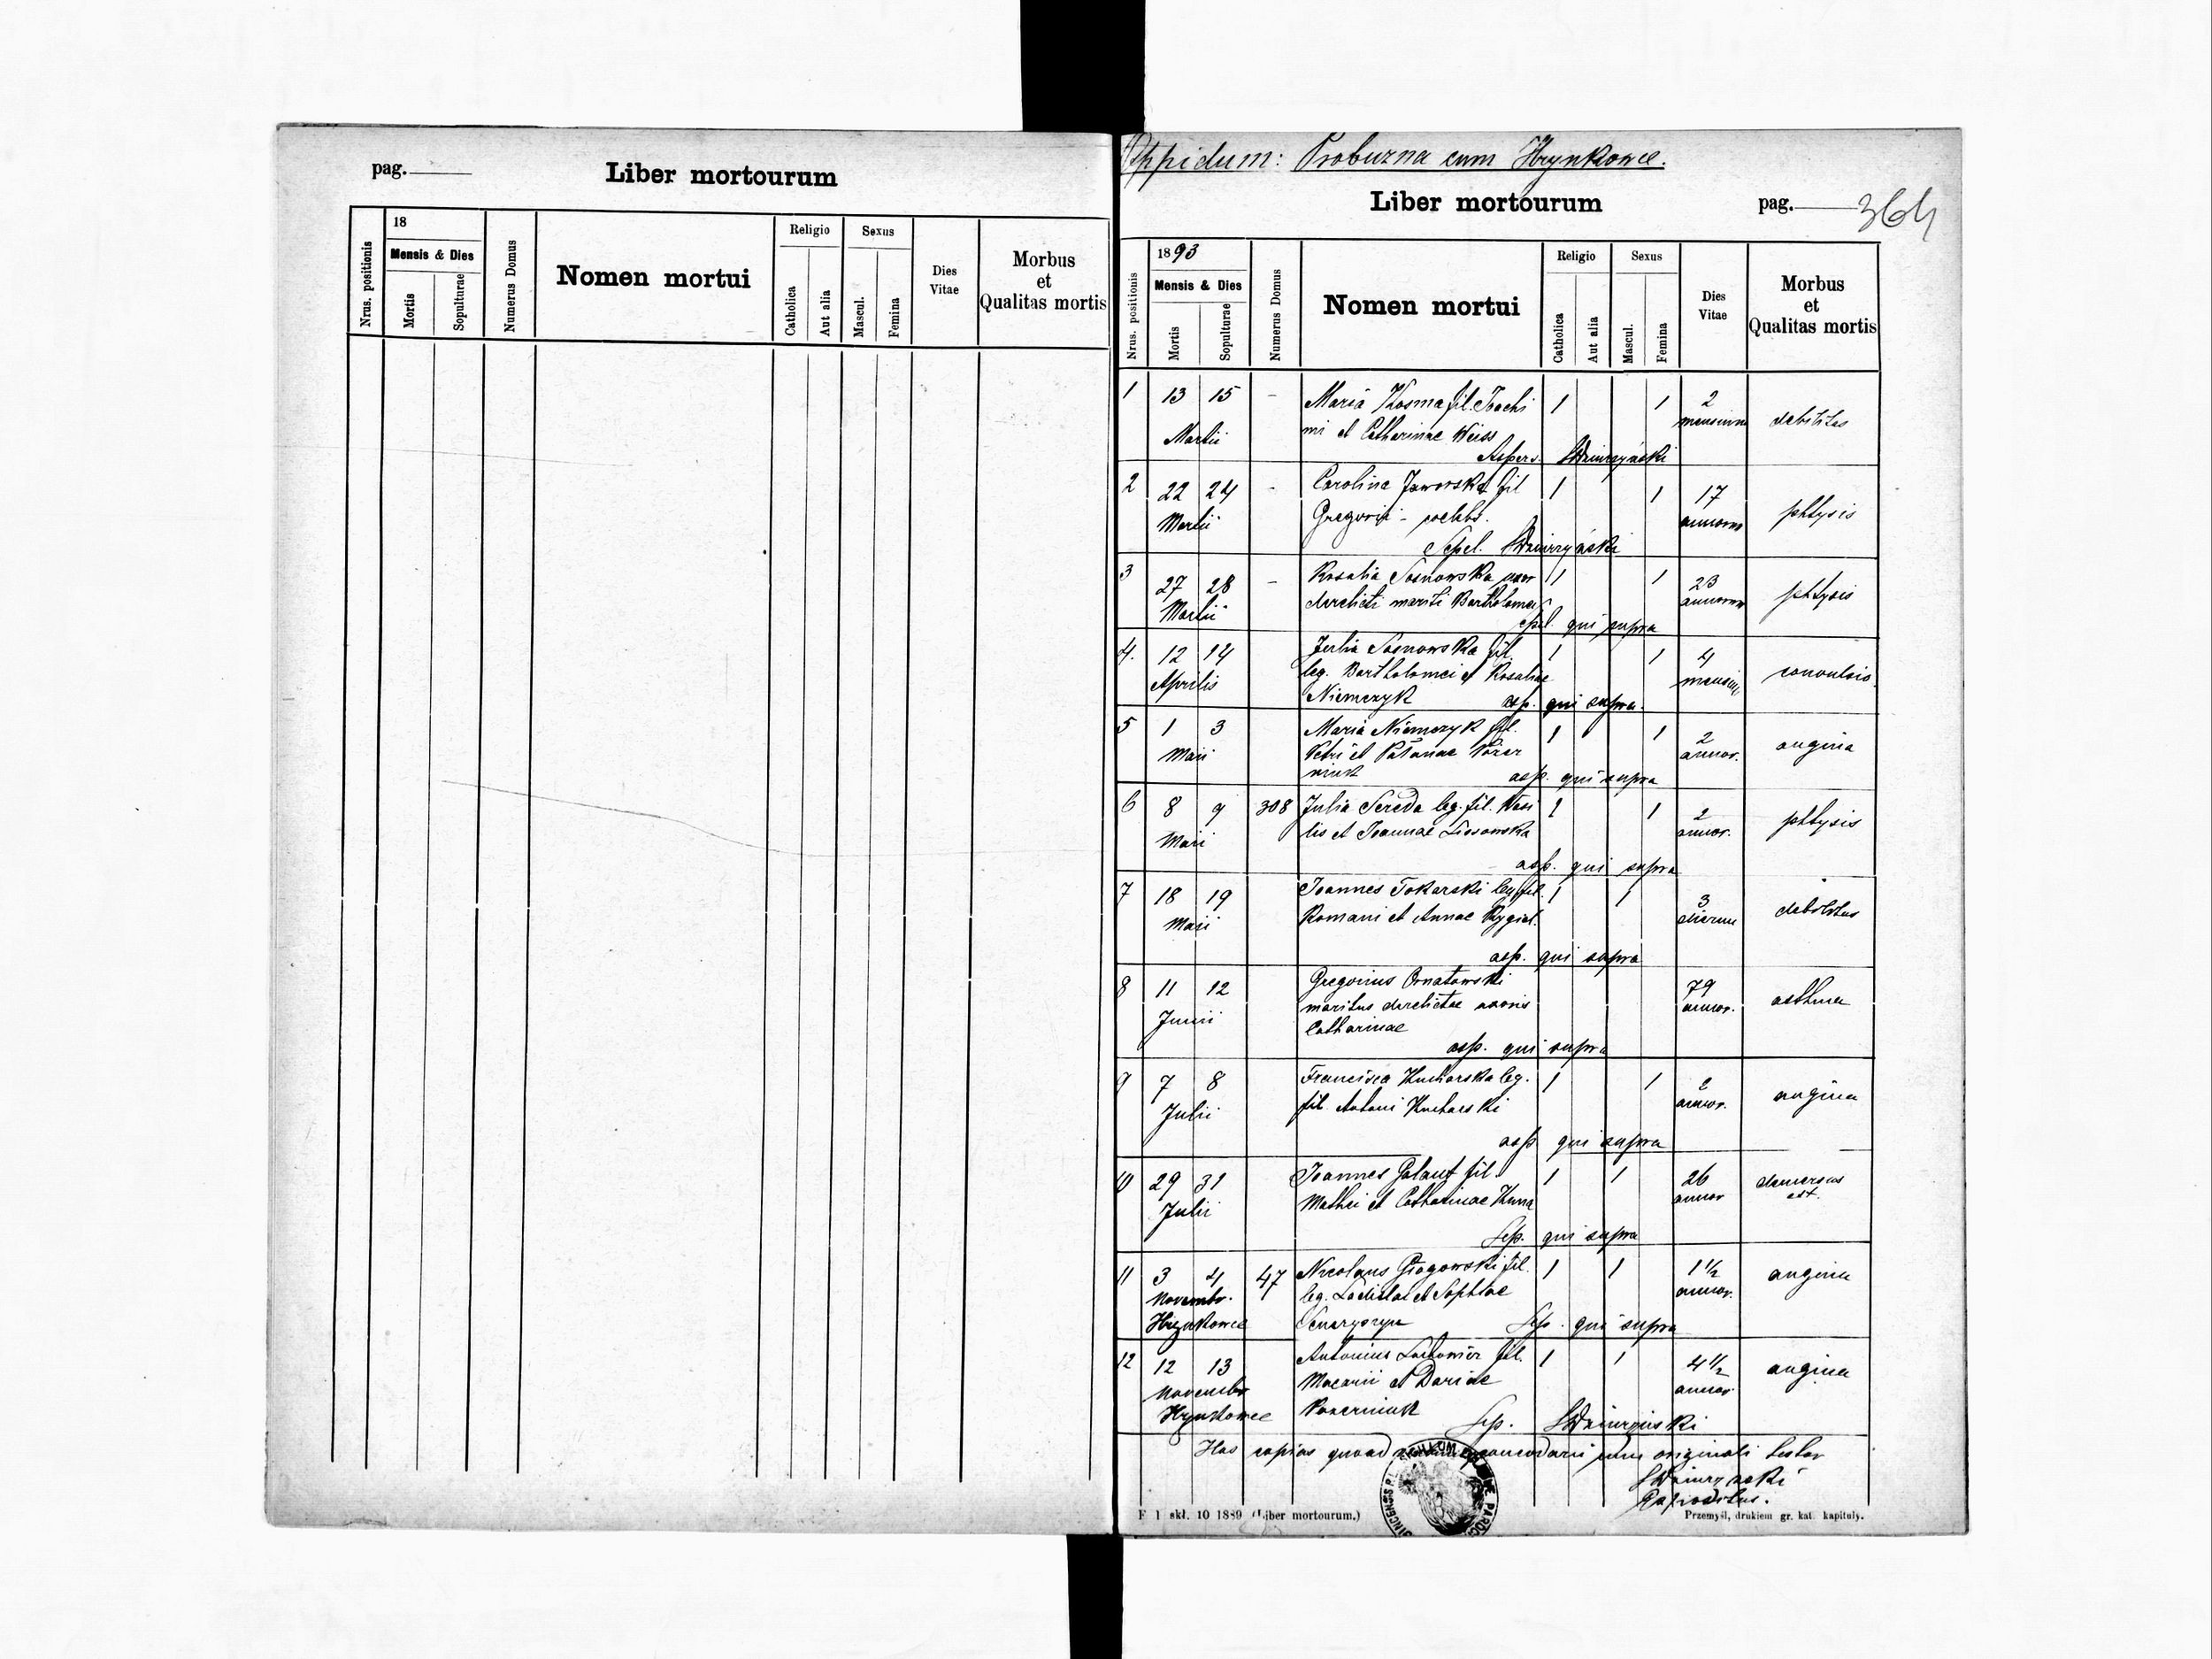 pag.
Liber mortourum
Nrus. positionis
18
Mensis & Dies
Mortis
Sopulturae
Numerus Domus
Nomen mortui
Religio
Catholica
Aut alia
Sexus
Mascul.
Femina
Dies
Vitae
Morbus
et
Qualitas mortis
Oppidum: Probuzna cum Hrynkowce.
Liber mortourum
pag. 364
Nrus. positionis
1893
Mensis & Dies
Mortis
Sopulturae
Numerus Domus
Nomen mortui
Religio
Catholica
Aut alia
Sexus
Mascul.
Femina
Dies
Vitae
Morbus
et
Qualitas mortis
1 13 15 - Maria Kosma fil. Joachi 1 1 2
Martii mi et Catharinae Weiss mensium debilitas
Aspers.
2 22 24 - Carolina Jaworska fil 1 1 17
Martii Gregorii - coelebs. annorum phtysis
Sepel.
3 27 28 - Rosalia Sosnowska uxor 1 1 23
Martii derelicti mariti Bartholomei annorum phtysis
sepel. qui supra
4. 12 14 Julia Sosnowska fil. 1 1 4
Aprilis leg. Bartholomei et Rosaliae mensium convulsio.
Niemczyk asp. qui supra.
5 1 3 Maria Niemczyk fil. 1 1 2
Maii Petri et annor. angina
asp. qui supra
6 8 9 308 Julia Sereda leg. fil. Wasi 1 1 2
Maii lis et Joannae Lisowska annor. phtysis
asp. qui supra
7 18 19 Joannes Tokarski leg. fil. 1 1 3
Maii Romani et Annae Rygiel. dierum debilitas
asp. qui supra
8 11 12 Gregorius Ornatowski 79
Junii maritus derelictae uxoris annor. asthma
Catharinae
asp. qui supra
9 7 8 Francisca Kucharska leg. 1 1 2
Julii fil. Antoni Kucharski annor. angina
asp qui supra
10 29 31 Joannes Galant fil. 1 1 26 demersus
Julii Mathei et Catharinae annor est.
Sep. qui supra
11 3 4 47 Nicolaus Głogowski fil. 1 1 1 1/2
Novembr. leg. Ladislai et Sophiae annor. angina
Hrynkowce Sep. qui supra
12 12 13 Antonius fil. 1 1 4 1/2
Novembr Macarii et Dariae annor angina
Hrynkowce Sep.
Has copias quoad concordari cum originali testor
F 1 skł. 10 1889 (Liber mortourum.)
Przemyśl, drukiem gr. kat. kapituły.